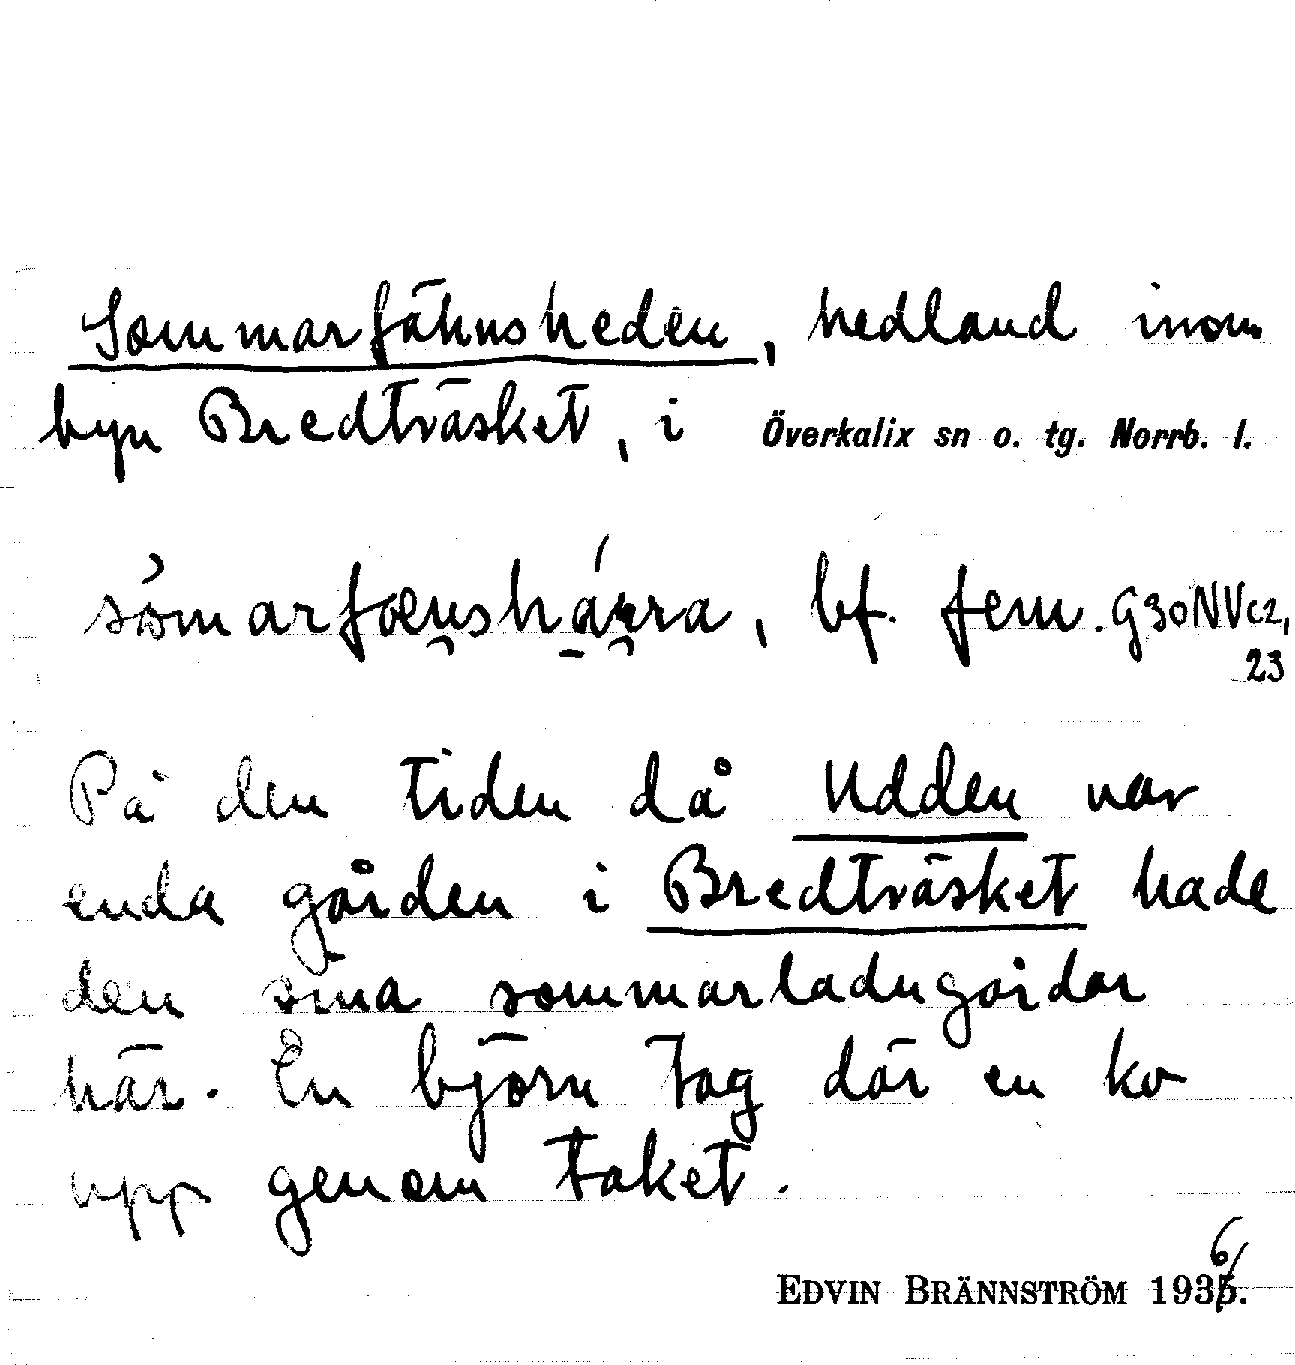 Sommarfähusheden, hedland inom
byn Bredträsket, i Överkalix sn o. tg. Norrb. l.
bf. fem. G30NVc2,
23
På den tiden då Udden var
enda gården i Bredträsket hade
den sina sommarladugårdar
här. En björn tog där en ko
upp genom taket.
EDVIN BRÄNNSTRÖM 1936.